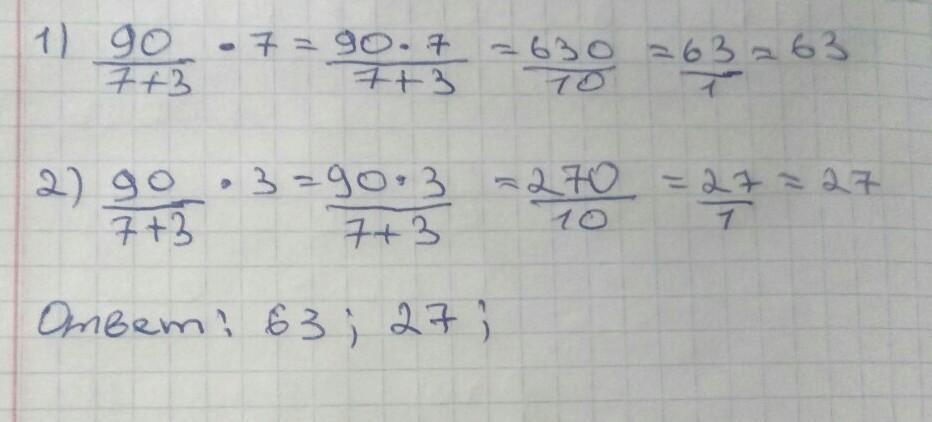 1) 90/7+3 · 7 = 90·7/7+3 = 630/10 = 63/1 = 63
2) 90/7+3 · 3 = 90·3/7+3 = 270/10 = 27/1 = 27
Ответ: 63; 27;